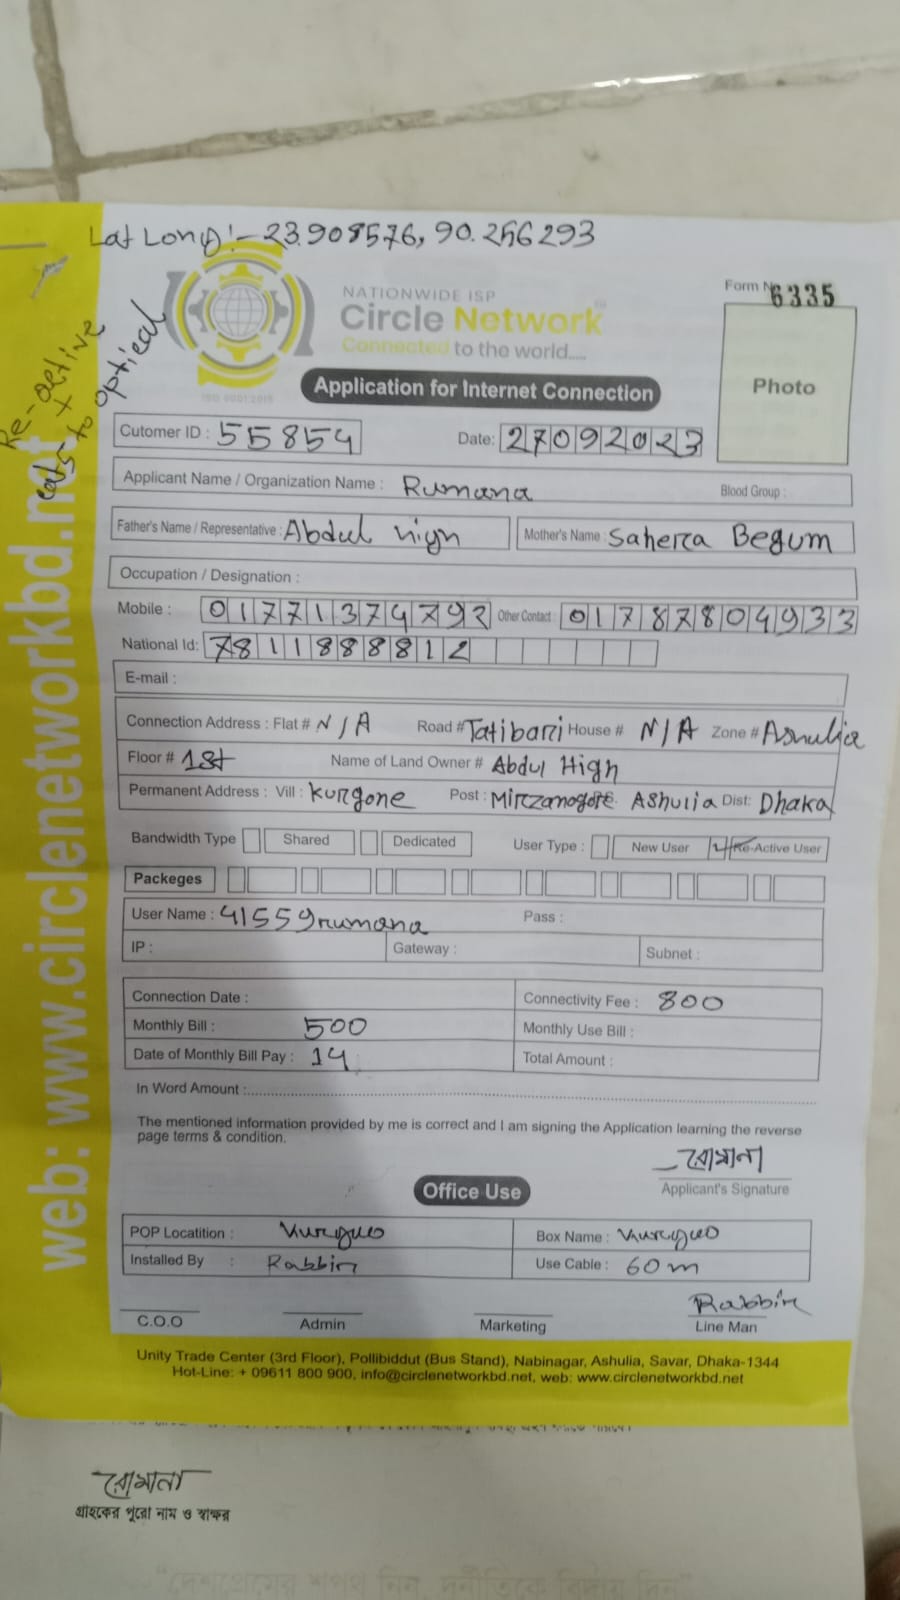 Lat Long:- 23.908576, 90.256293
Re-active
+
cat5 to optical
NATIONWIDE ISP
Form No 6335
Circle Network
Connected to the world.....
ISO 9001:2015
Photo
Application for Internet Connection
Cutomer ID : 55854 Date: 27092023
Applicant Name / Organization Name : Rumana Blood Group :
Father's Name / Representative : Abdul High Mother's Name : Saherra Begum
Occupation / Designation :
Mobile : 01771374792 Other Contact : 01787804933
National Id: 7811888812
E-mail :
Connection Address : Flat # N/A Road # Tatibari House # N/A Zone # Ashulia
Floor # 1st Name of Land Owner # Abdul High
Permanent Address : Vill : Kurgone Post : Mirzanogore Ashulia Dist: Dhaka
Bandwidth Type Shared Dedicated User Type : New User Re-Active User
Packeges
User Name : 41559rumana Pass :
IP : Gateway : Subnet :
Connection Date : Connectivity Fee : 800
Monthly Bill : 500 Monthly Use Bill :
Date of Monthly Bill Pay : 14 Total Amount :
In Word Amount :
The mentioned information provided by me is correct and I am signing the Application learning the reverse
page terms & condition.
রোমানা
Applicant's Signature
Office Use
POP Locatition : Box Name :
Installed By : Rabbin Use Cable : 60m
Rabbin
C.O.O Admin Marketing Line Man
Unity Trade Center (3rd Floor), Pollibiddut (Bus Stand), Nabinagar, Ashulia, Savar, Dhaka-1344
Hot-Line: + 09611 800 900, info@circlenetworkbd.net, web: www.circlenetworkbd.net
web: www.circlenetworkbd.net
রোমানা
গ্রাহকের পুরো নাম ও স্বাক্ষর
"দেশপ্রেমের শপথ নিন, দুর্নীতিকে বিদায় দিন"